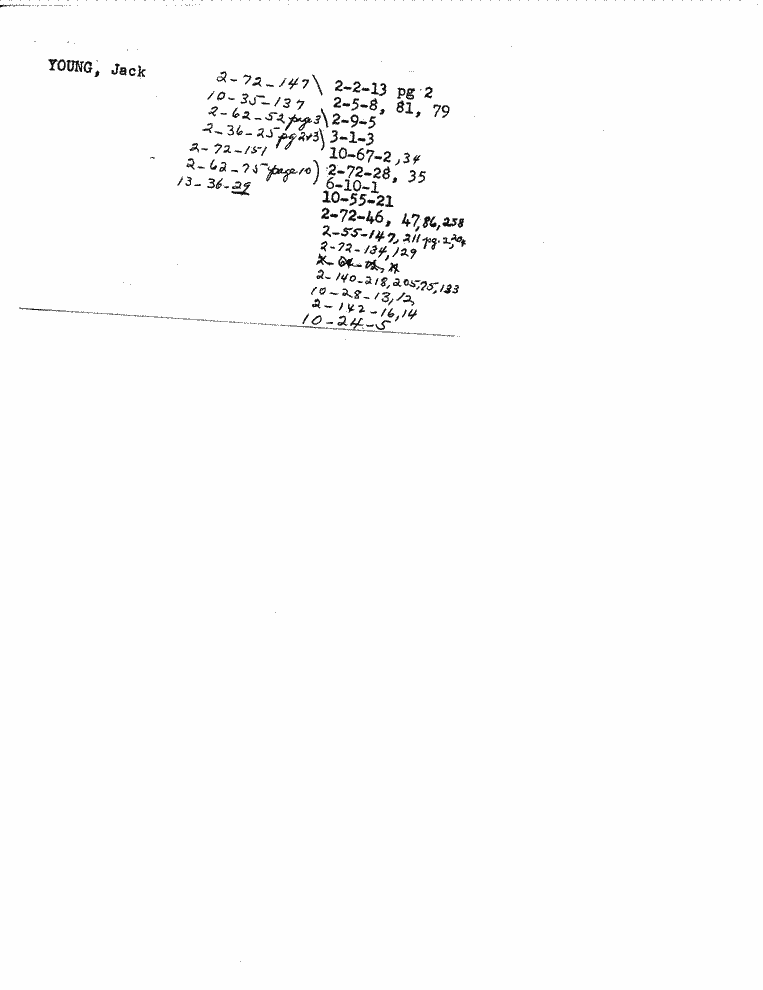 YOUNG, Jack
2-72-147 \ 2-2-13 pg 2
10-35-137 2-5-8, 81, 79
2-62-52 page 3 \ 2-9-5
2-36-25 pg 2+3 \ 3-1-3
2-72-151 10-67-2, 34
2-62-75 page 10) 2-72-28, 35
13-36-29 6-10-1
10-55-21
2-72-46, 47, 86, 258
2-55-147, 211 pg. 2, 204
2-72-134, 129
2-140-218, 205, 75, 133
10-28-13, 12,
2-142-16, 14
10-24-5